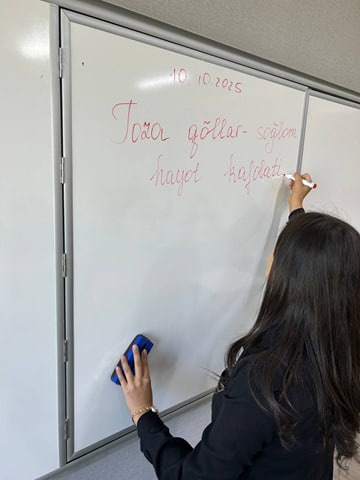 10.10.2025
Toza qõllar - sog̃lom
hayot kafolati